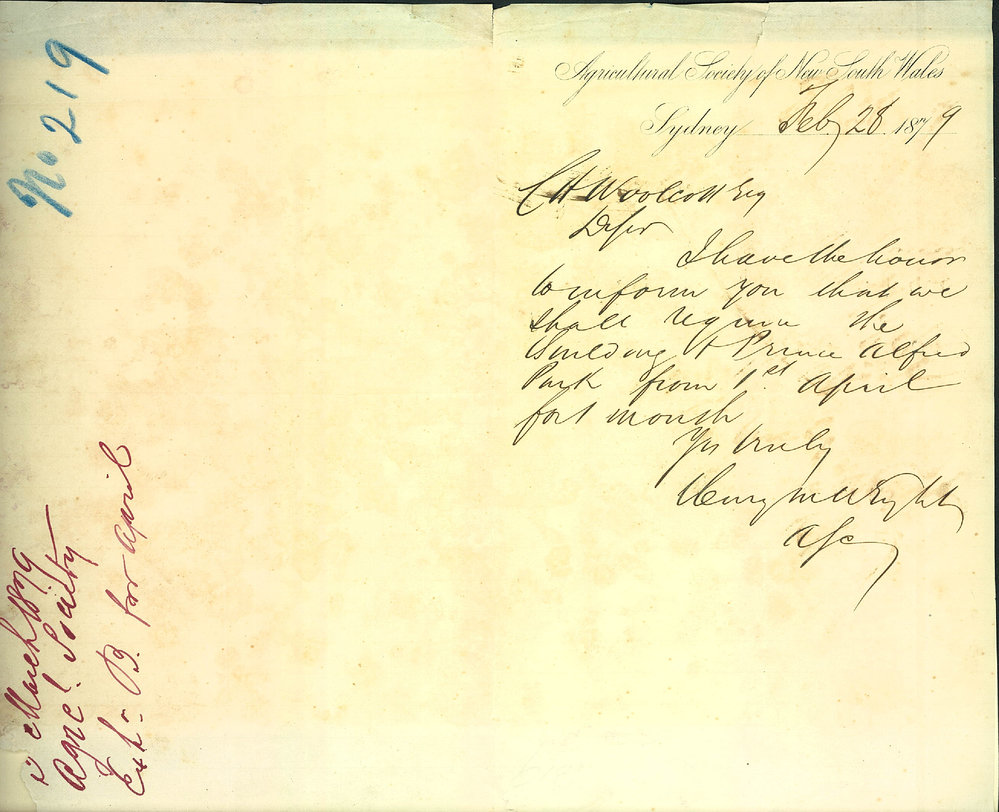 No 219
Agricultural Society of New South Wales
Sydney Feby 28 1879
C H Woolcott Esq
D Sir
I have the honor
to inform you that we
shall require the
Building & Prince Alfred
Park from 1st April
for 1 month
Yrs truly
Henry M Wright
March 1879
Agrcl. Society
Exhn B. for April